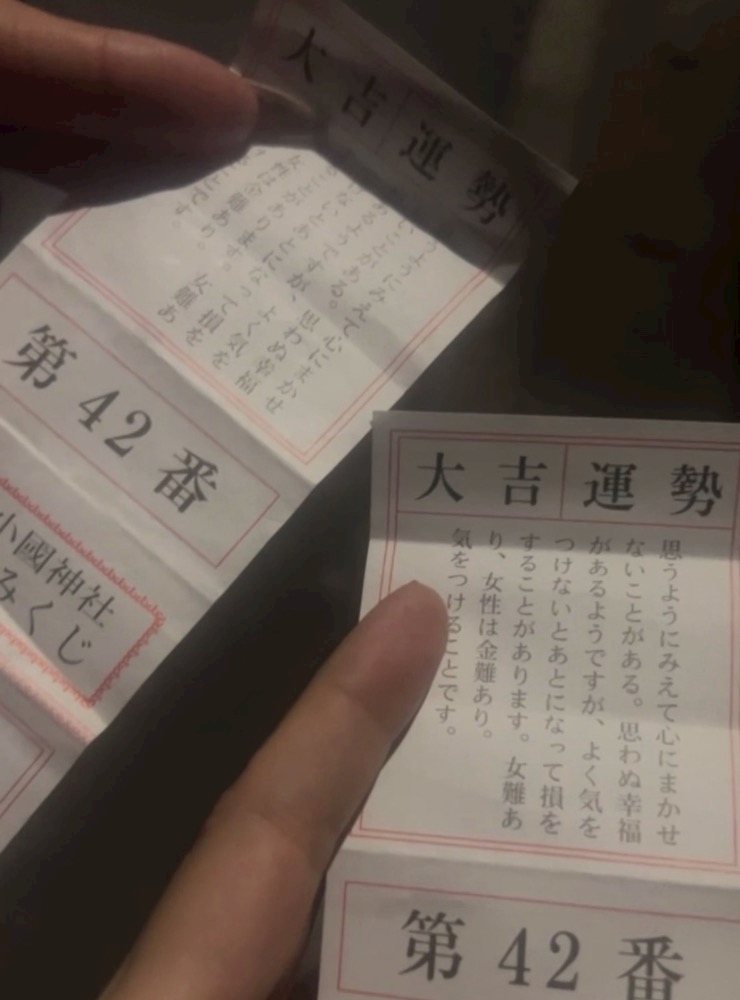 大吉 運勢
思うようにみえて心にまかせ
ないことがある。思わぬ幸福
があるようですが、よく気を
つけないとあとになって損を
することがあります。女難あ
り、女性は金難あり。
気をつけることです。
第42番
小國神社
みくじ
大吉 運勢
思うようにみえて心にまかせ
ないことがある。思わぬ幸福
があるようですが、よく気を
つけないとあとになって損を
することがあります。女難あ
り、女性は金難あり。
気をつけることです。
第42番